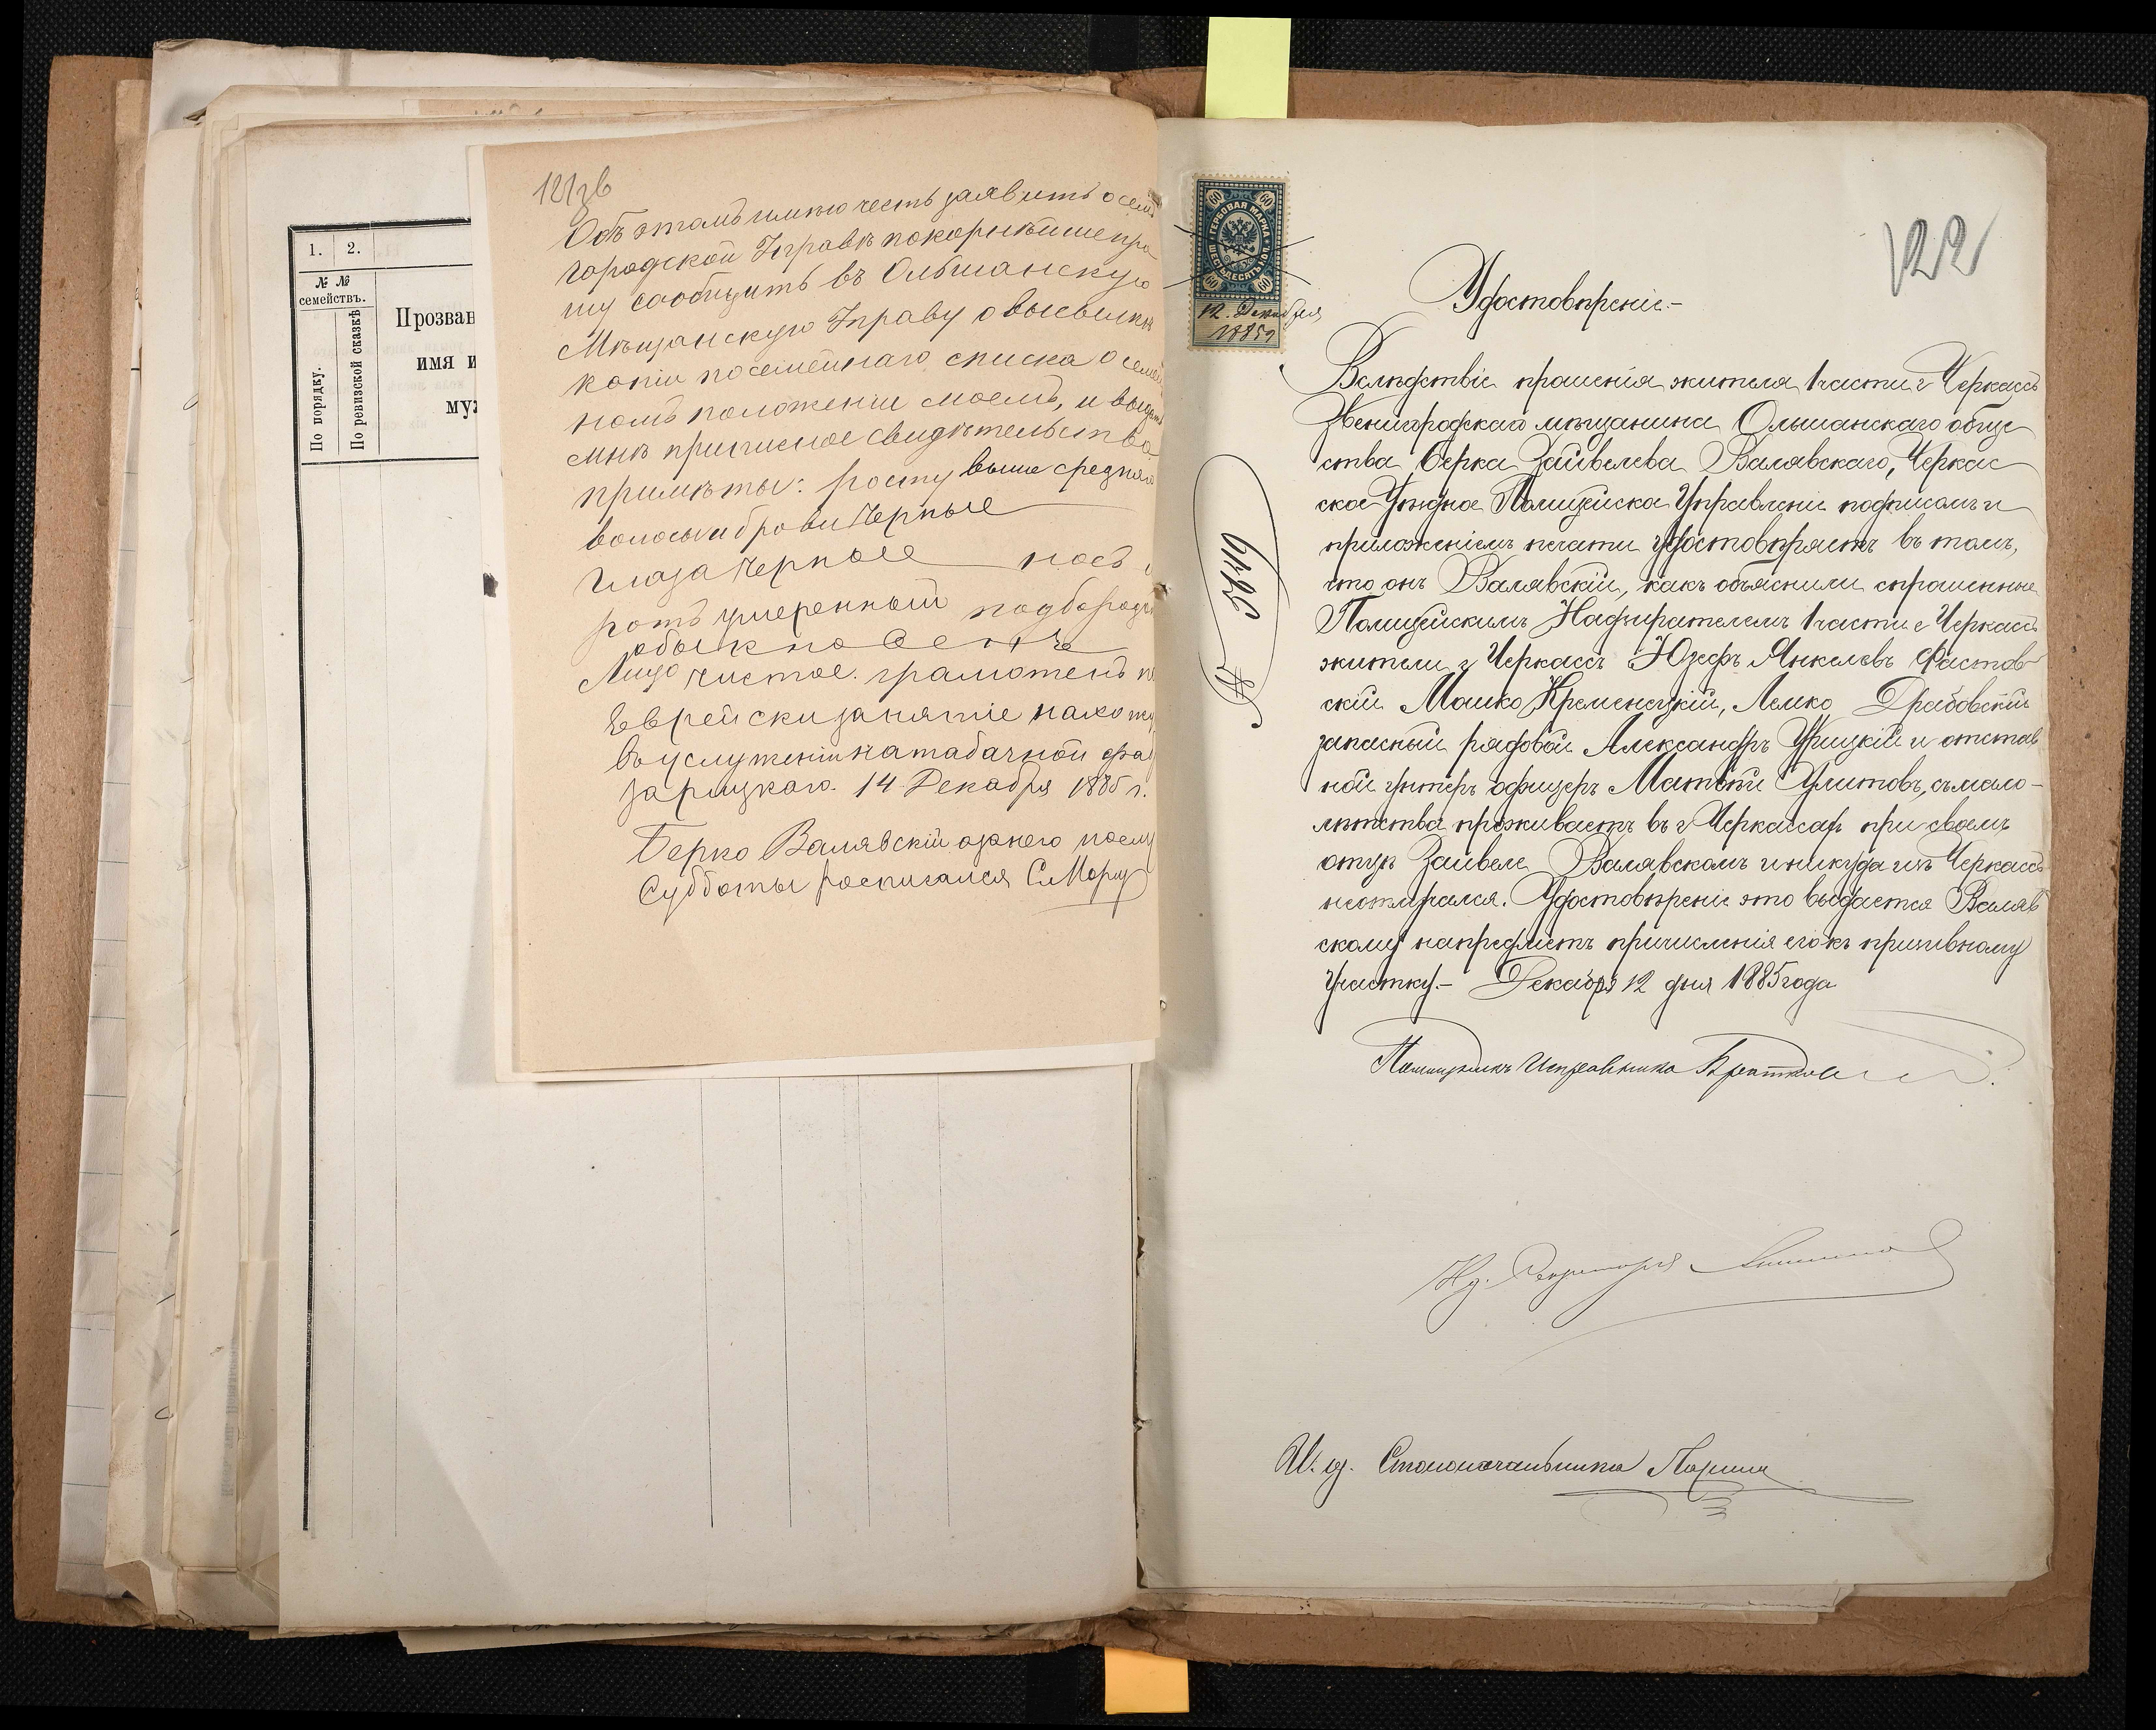 1.
2.
№ №
семействъ.
По порядку.
По ревизской сказкѣ
Прозван
имя и
муж
121зв
Объ этомъ имѣю честь заявить о семъ
Городской Управѣ покорнѣйше про
шу сообщить въ Ольшанскую
Мѣщанскую Управу о высылкѣ
копіи посемейнаго списка о семей
номъ положеніи моемъ, и выдать
мнѣ приписное свидѣтельство.
примѣты: росту выше средняго
волосы и брови черные
глаза черные носъ и
ротъ умеренный подбородъ
обыкновенъ
Лицо чистое. грамотенъ по
Еврейски занятіе нахожу
въ услуженіи на табачной фаб
зарицкаго. 14 Декабря 1885 г.
Берко Валявскій а за него по случ
Субботы росписался
60 60
ГЕРБОВАЯ МАРКА
ШЕСТЬДЕСЯТЪ КОП.
60 60
12. Декабря
1885 г
122
№ 3649
Удостовѣреніе.-
Вслѣдствіе прошенія жителя 1 части г Черкассъ
Звенигородскаго мѣщанина Ольшанскаго обще
ства Берка Зайвелева Валявскаго, Черкас
ское Уѣздное Полицейское Управленіе подписомъ и
приложеніемъ печати удостовѣряетъ въ томъ,
что онъ Валявскій, какъ объяснили спрошенные
Полицейскимъ Надзирателемъ 1 части г Черкассъ
жители г Черкассъ Юзефъ Янкелевъ Фастов-
скій Мошко Кременецкій, Лейко Драбовскій
запасный рядовой Александръ Урицкій и отстав
ной унтеръ офицеръ Матвѣй Улитовъ, съ мало-
лѣтства проживаетъ въ г Черкассахъ при своемъ
отцѣ Зайвеле Валявскомъ и никуда изъ Черкассъ
не отлучался. Удостовѣреніе это выдается Валяв
скому на предметъ причисленія его къ призывному
участку.- Декабря 12 дня 1885 года
Помощникъ Исправника
Ид. Секретаря
И. д. Столоначальника